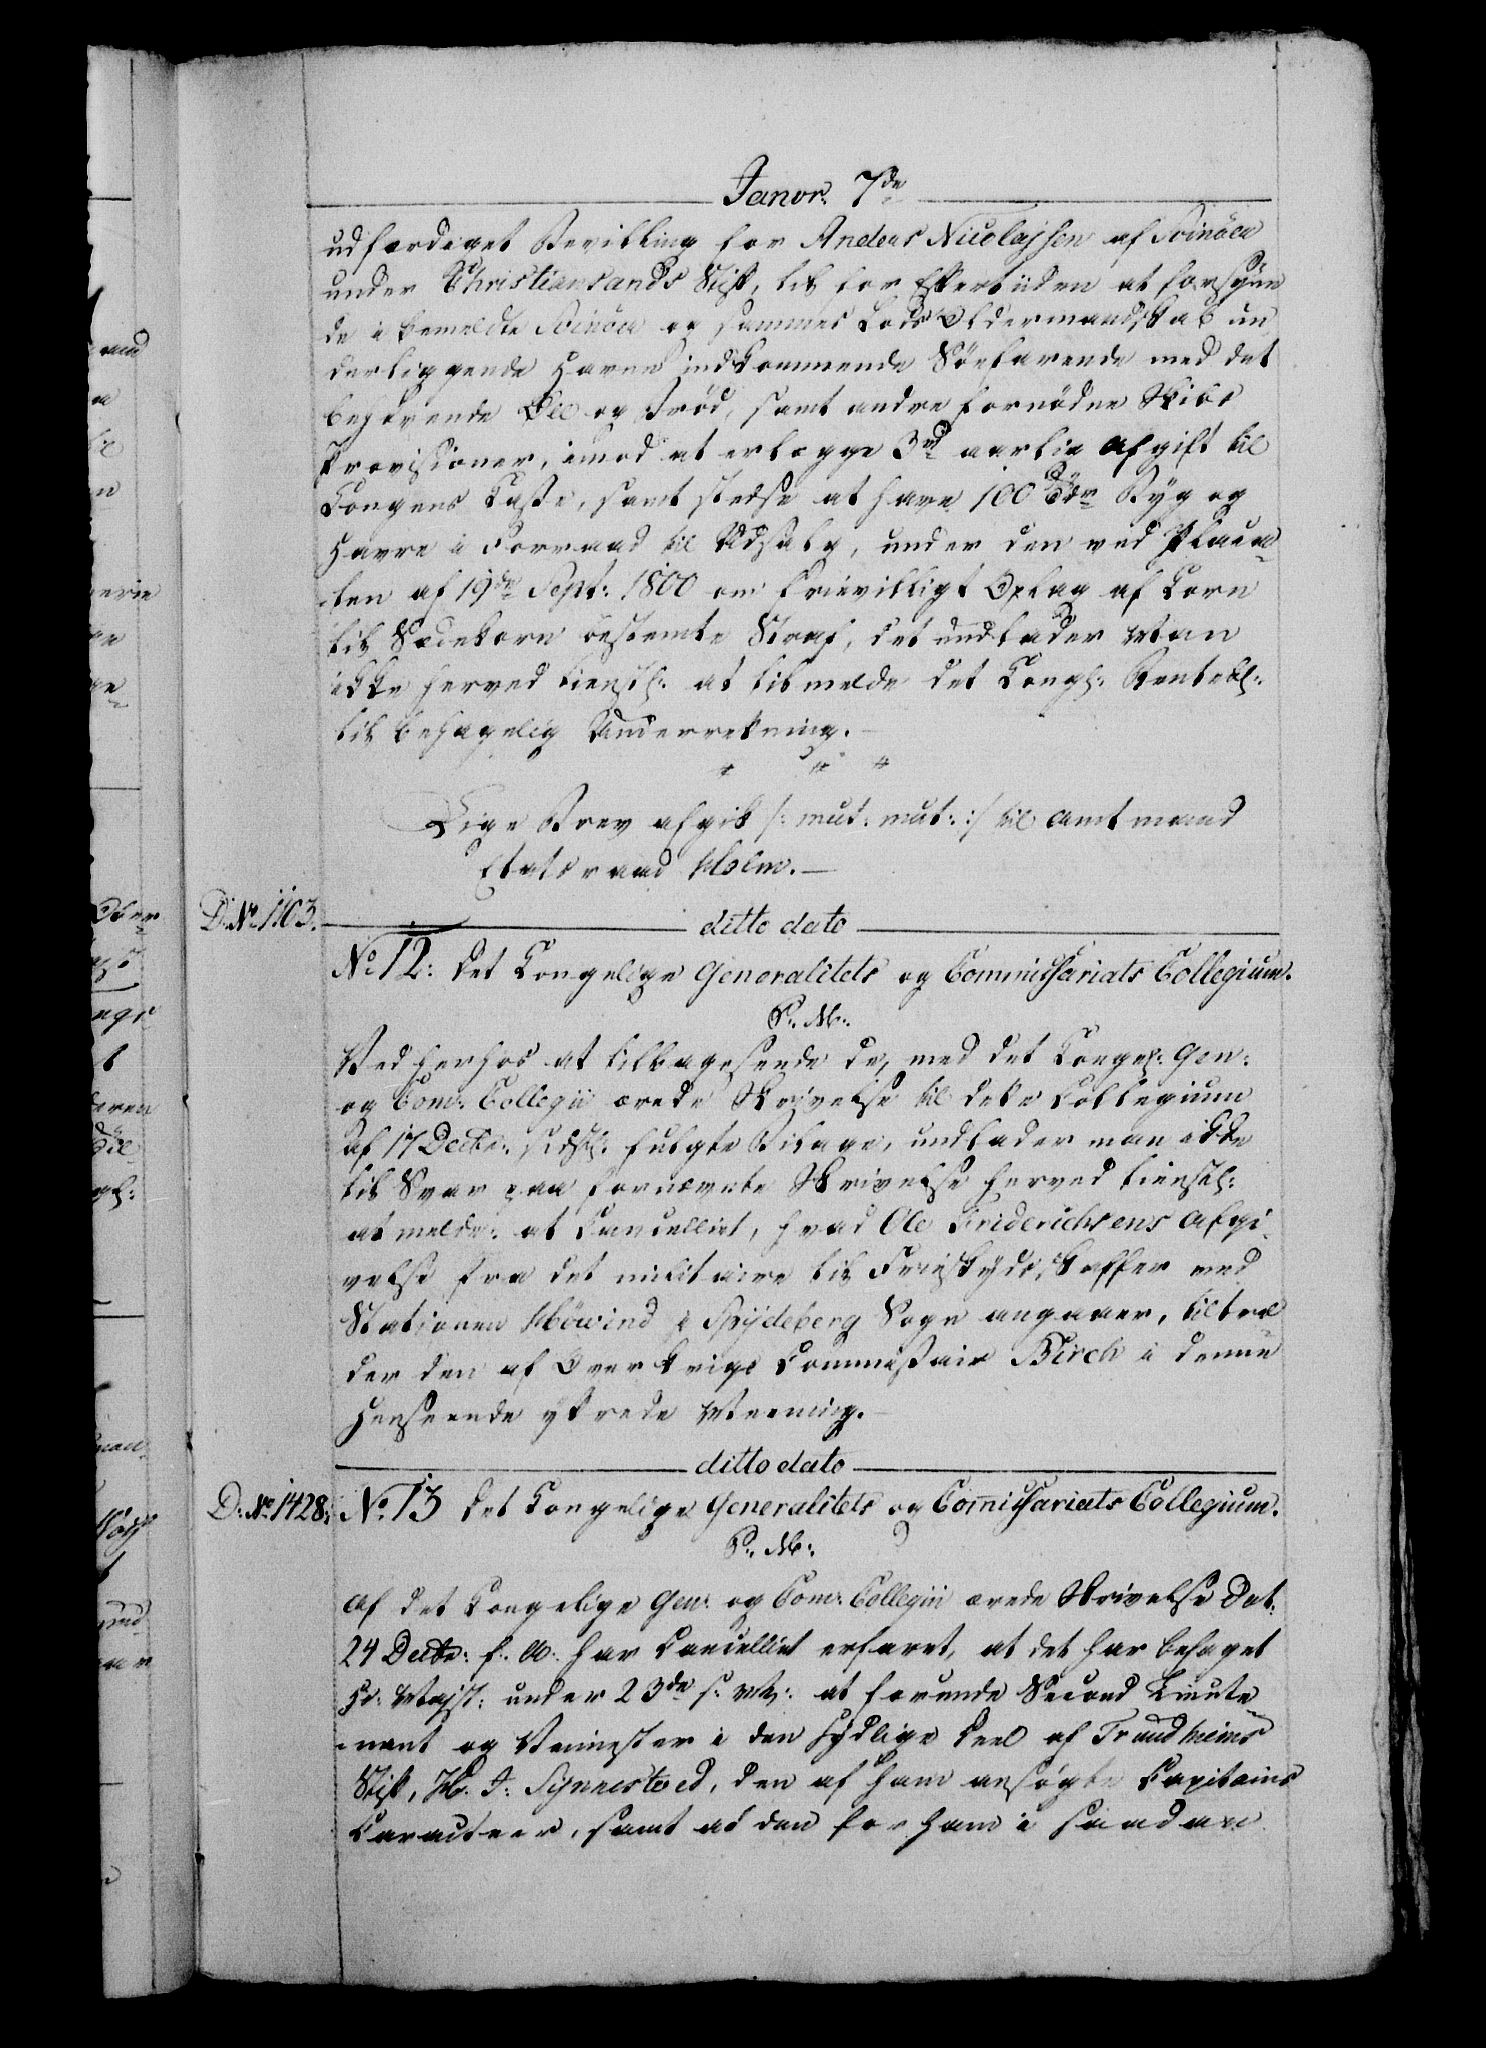 Janvr: 7de
udfærdiget Bevilling for Anders Nicolajsen af Svinöer
under Christiansands Stift, til for Eftertiden at forsÿne
de i bemeldte Svinöer og sammes Lods Oldermandskab un
derliggende Havne indkommende Söefarende med det
begierende Öll og Bröd, samt andre fornödne Skibs
Provisioner, imod at erlægge 3rd aarlig Afgift til
Kongens Casse, samt stedse at have 100 Tdr Rÿg og
Havre i Forraad til Udsalg, under den ved Placa
ten af 19de Septr: 1800 om frievilligt Oplag af Korn
til Sædekorn bestemte Straf, det undlader Man
ikke herved tienstl: at tilmelde det Kongl: Rentekl:
til behagelig Underretning.—
Lige Brev afgik /: mut: mut: :/ til Amtmand
Etatsraad Holm.—
D: No 1103.
ditto dato
No 12: Det Kongelige Generalitets og Commissariats Collegium.
P. M:
Ved herhos at tilbagesende de, med det Kongel: Gen:
og Com: Collegii ærede Skrivelse til dette Collegium
af 17 Decbr: sidstl: fulgte Bilage, undlader man ikke
til Svar paa fornævnte Skrivelse herved tienstl:
at melde: at Cancelliet, hvad Ole Friderichsens Afgi
velse fra det militaire til Frieskÿds, Skaffer ved
Stationen Höwind i Spÿdeberg Sogn angaaer, tiltræ
der den af Over Krigs Commissair Birch i denne
Henseende ÿtrede Meening.—
ditto dato
D: No 1428:
No 13 Det Kongelige Generalitets og Comissariats Collegium.
P. M:
Af det Kongelige Gen: og Com: Collegii ærede Skrivelse Dat:
24 Decbr: f: A: har Cancelliet erfaret, at det har behaget
Hs: Majst: under 23de s: M: at forunde Second Lieute
nant og Veimester i den sÿdlige Deel af Trundheims
Stift, H. J: Sÿnnestved, den af ham ansögte Capitains
Caracteer, samt at den for ham i saadan